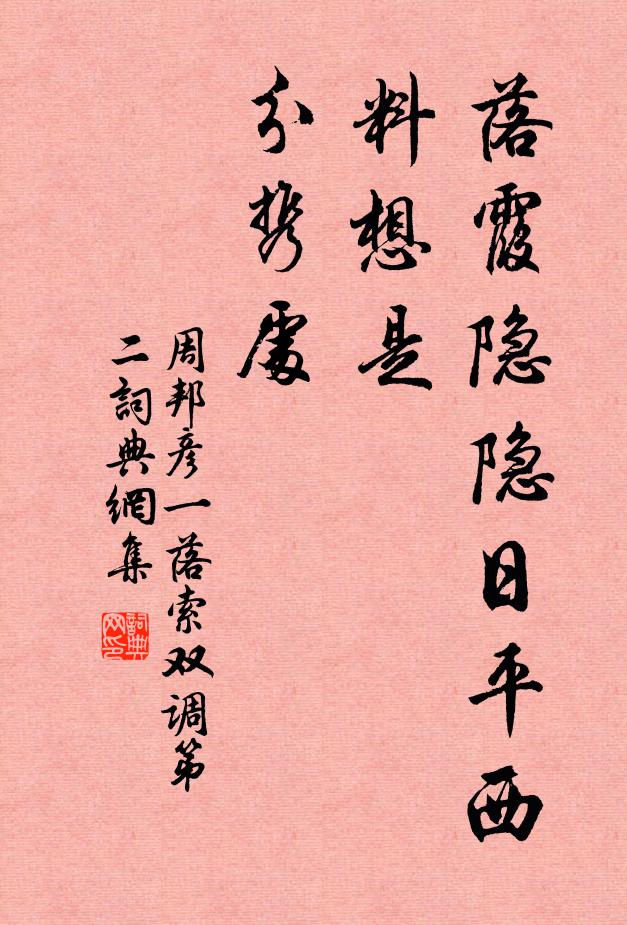 落霞隐隐日平西
料想是
分携處
周邦彦一落索双调第
二詞典網集
詞典
网印